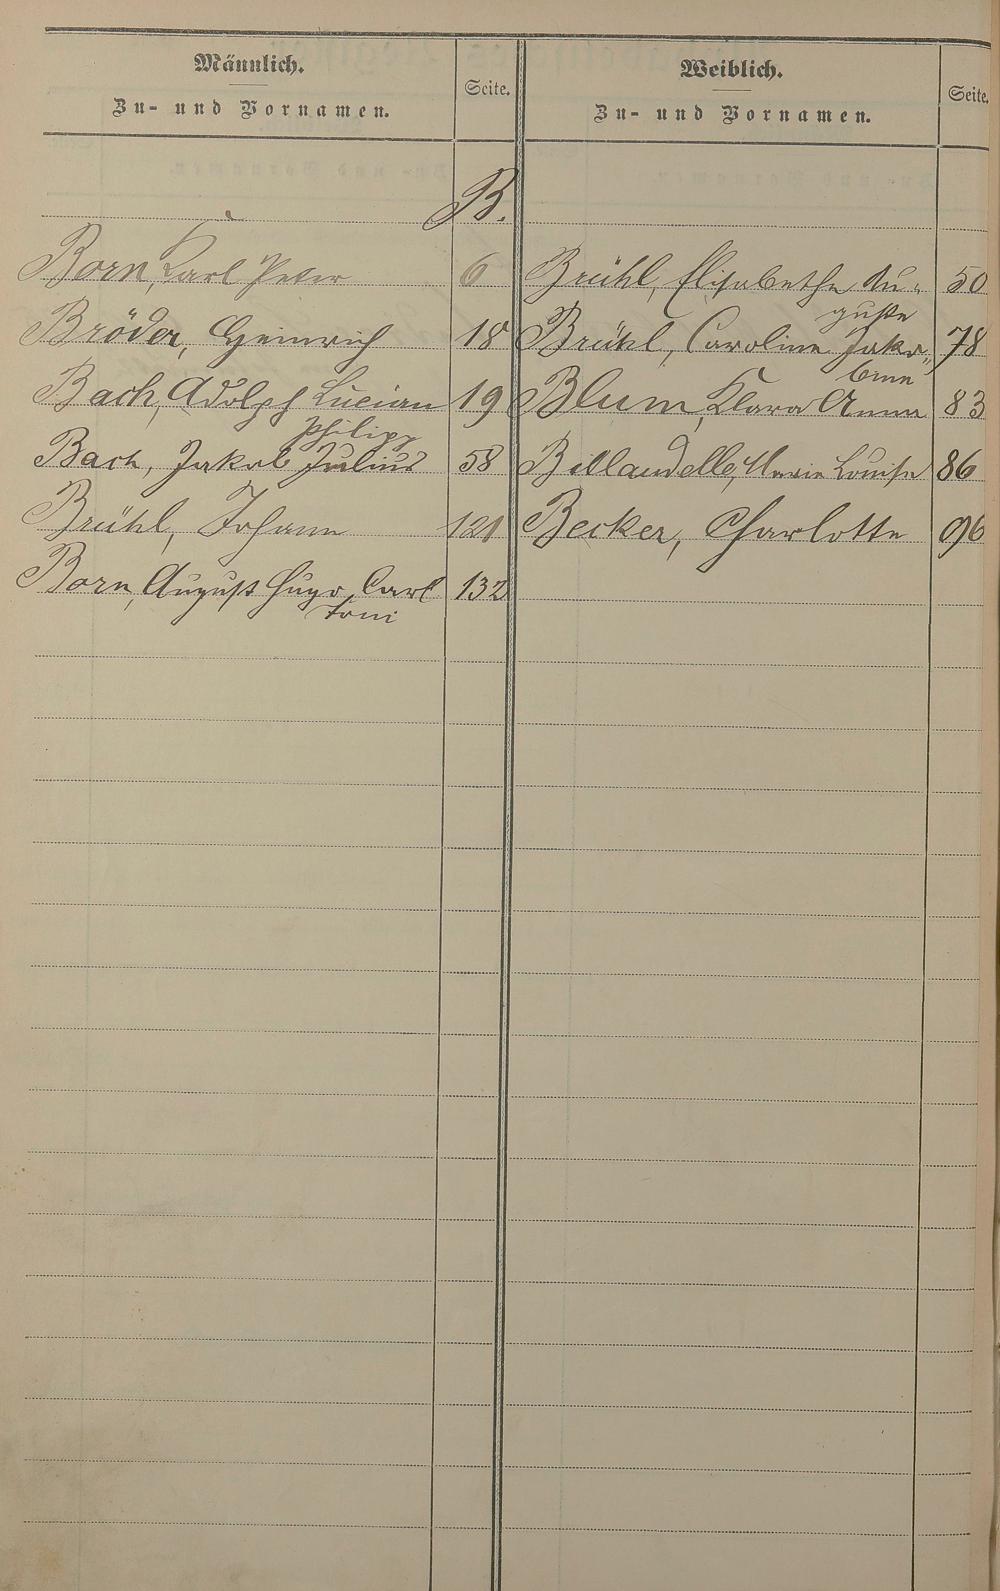 Männlich.
Zu- und Vornamen.
Seite.
Weiblich.
Zu- und Vornamen.
Seite.
B.
Born, Karl Peter 6 Brühl, Elisabethe Au- 50
guste
Bröder, Heinrich 18 Brühl, Caroline Jako- 78
bine
Bach, Adolph Lucian 19 Blum, Klara Anna 83
Philipp
Bach, Jakob Julius 58 Billaudelle, Marie Louise 86
Brühl, Johann 121 Becker, Charlotte 96
Born, August Hugo Carl 132
Toni